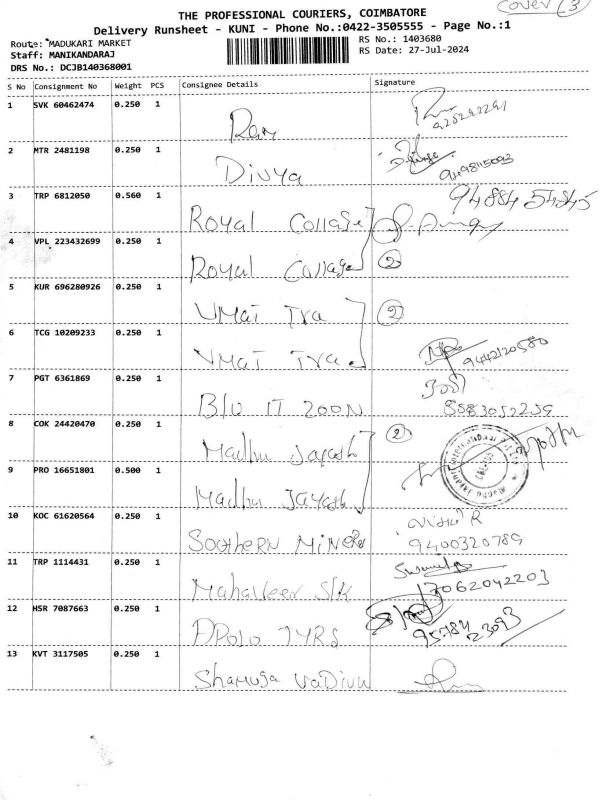 cover (3)
THE PROFESSIONAL COURIERS, COIMBATORE
Delivery Runsheet - KUNI - Phone No.:0422-3505555 - Page No.:1
Route: MADUKARI MARKET
RS No.: 1403680
Staff: MANIKANDARAJ
RS Date: 27-Jul-2024
DRS No.: DCJB140368001
S No Consignment No Weight PCS Consignee Details Signature
1 SVK 60462474 0.250 1
Ram
2 MTR 2481198 0.250 1
Divya
3 TRP 6812050 0.560 1
94884 54845
Royal Collage
4 VPL 223432699 0.250 1
Royal Collage (2)
5 KUR 696280926 0.250 1
UMai Tra (2)
6 TCG 10209233 0.250 1
UMai Tra 9442120580
7 PGT 6361869 0.250 1
B/U IT 200N 8583052259
8 COK 24420470 0.250 1
Madhu Jayash (2)
9 PRO 16651801 0.500 1
Madhu Jayash
10 KOC 61620564 0.250 1
Soothern Miners 9400320789
11 TRP 1114431 0.250 1
Mahaveer S/K 7062042203
12 HSR 7087663 0.250 1
Apolo TYRS 95784 23093
13 KVT 3117505 0.250 1
Shamuga Vadivu